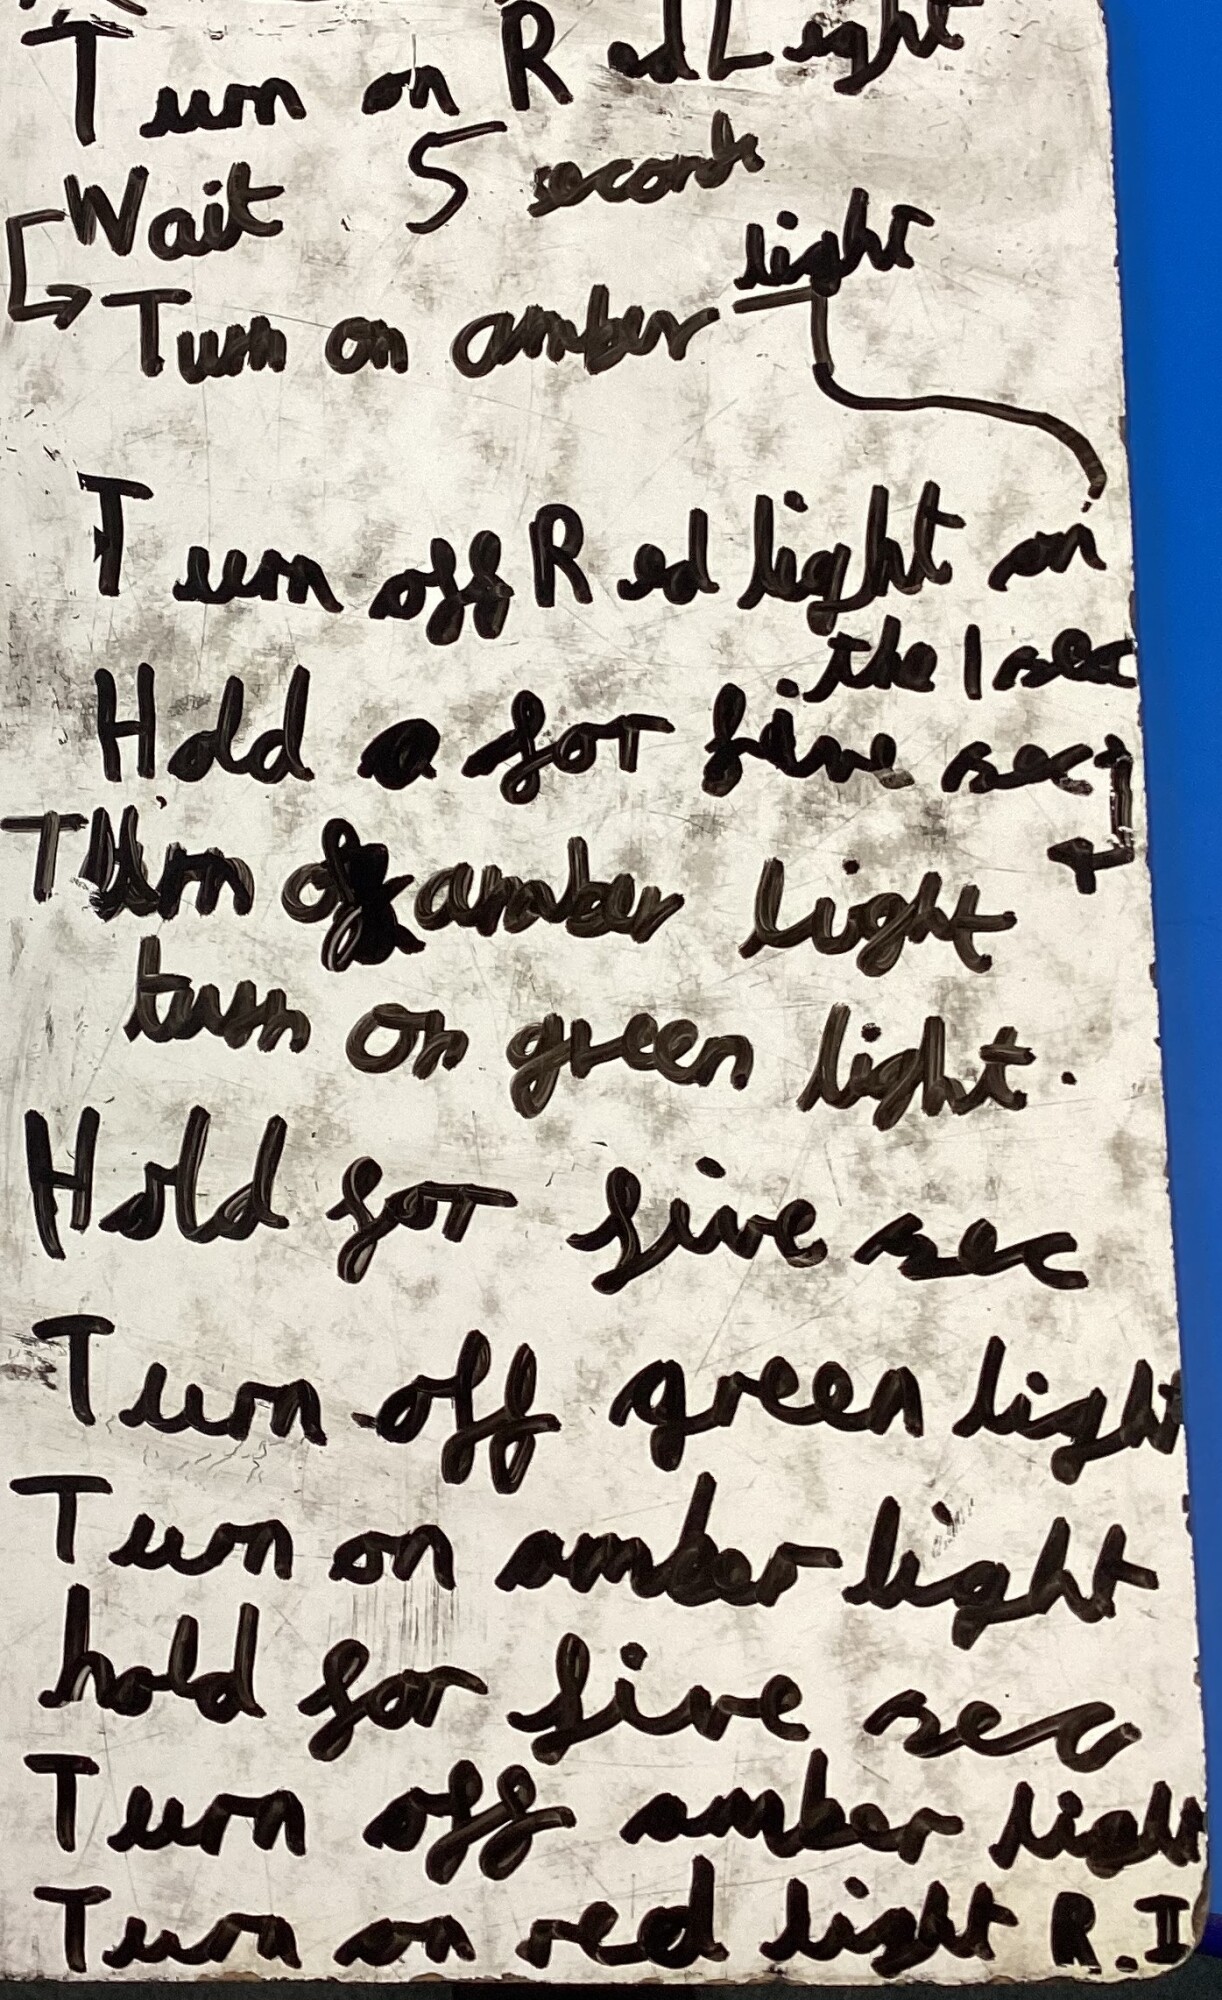 Turn on Red Light
Wait 5 seconds
Turn on amber light
Turn off Red light on
the 1 sec
Hold a for five sec
Turn of amber light
turn on green light.
Hold for five sec
Turn off green light
Turn on amber light
hold for five sec
Turn off amber light
Turn on red light R.II